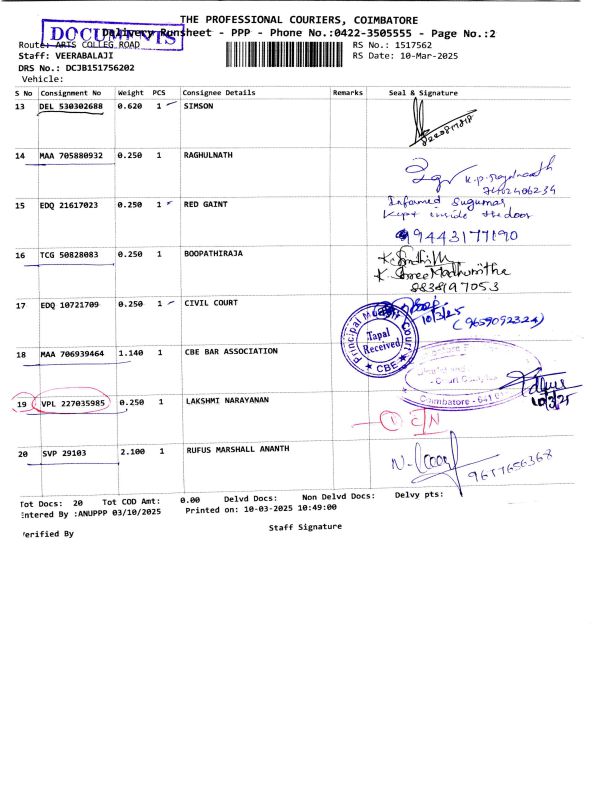 THE PROFESSIONAL COURIERS, COIMBATORE
DOCUMENTS
Delivery Runsheet - PPP - Phone No.:0422-3505555 - Page No.:2
Route: ARTS COLLEG ROAD RS No.: 1517562
Staff: VEERABALAJI RS Date: 10-Mar-2025
DRS No.: DCJB151756202
Vehicle:
S No Consignment No Weight PCS Consignee Details Remarks Seal & Signature
13 DEL 530302688 0.620 1 SIMSON
14 MAA 705880932 0.250 1 RAGHULNATH
7402406234
15 EDQ 21617023 0.250 1 RED GAINT Informed Sugumar
Kept inside the door
99443177190
16 TCG 50828083 0.250 1 BOOPATHIRAJA
K. Shree Madhumitha
8838197053
17 EDQ 10721709 0.250 1 CIVIL COURT
10/3/25
(9659092324)
Principal Munsif Court
Tapal
Received
★ CBE ★
18 MAA 706939464 1.140 1 CBE BAR ASSOCIATION
Coimbatore - 641 01
10/3/25
19 VPL 227035985 0.250 1 LAKSHMI NARAYANAN
1 C/N
20 SVP 29103 2.100 1 RUFUS MARSHALL ANANTH
9677656368
Tot Docs: 20 Tot COD Amt: 0.00 Delvd Docs: Non Delvd Docs: Delvy pts:
Entered By :ANUPPP 03/10/2025 Printed on: 10-03-2025 10:49:00
Staff Signature
Verified By